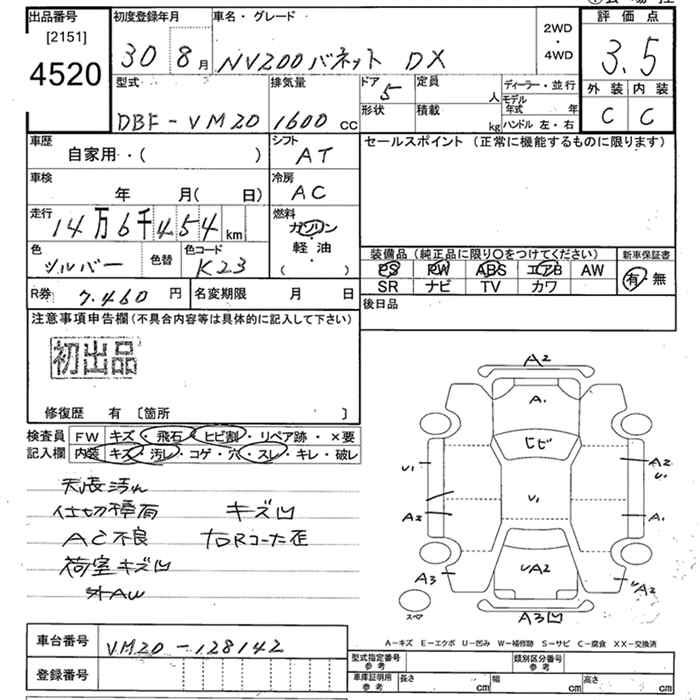 出品番号
[2151]
4520
初度登録年月
30 8月
車名・グレード
NV200バネット DX
2WD
・
4WD
評価点
3.5
外装 内装
C C
型式
DBF-VM20
排気量
1600 cc
ドア 5
形状
定員 人
積載 kg
ディーラー・並行
モデル年式 年
ハンドル 左・右
車歴
自家用・( )
シフト
AT
セールスポイント (正常に機能するものに限ります)
車検
年 月( 日)
冷房
AC
走行
14万6千454km
燃料
ガソリン
・
軽油
( )
色
シルバー
色替
色コード
K23
装備品 (純正品に限り○をつけてください)
PS PW ABS エアB AW
SR ナビ TV カワ
新車保証書
有・無
R券 7.460円
名変期限 月 日
後日品
注意事項申告欄(不具合内容等は具体的に記入して下さい)
初出品
修復歴 有 [箇所 ]
検査員記入欄
FW キズ・飛石・ヒビ割・リペア跡・×要
内装 キズ・汚れ・コゲ・穴・スレ・キレ・破レ
天張汚れ
キズ凹
AC不良
荷室キズ凹
外AW
A2
A1
ヒビ
U1
A2
U1
U1
A2
A1
A3
UA2
UA2
A3凹
スペア
A-キズ E-エクボ U-凹み W-補修跡 S-サビ C-腐食 XX-交換済
車台番号 VM20-128142
登録番号
型式指定番号 参考
類別区分番号 参考
車庫証明用 参考
長さ cm
幅 cm
高さ cm